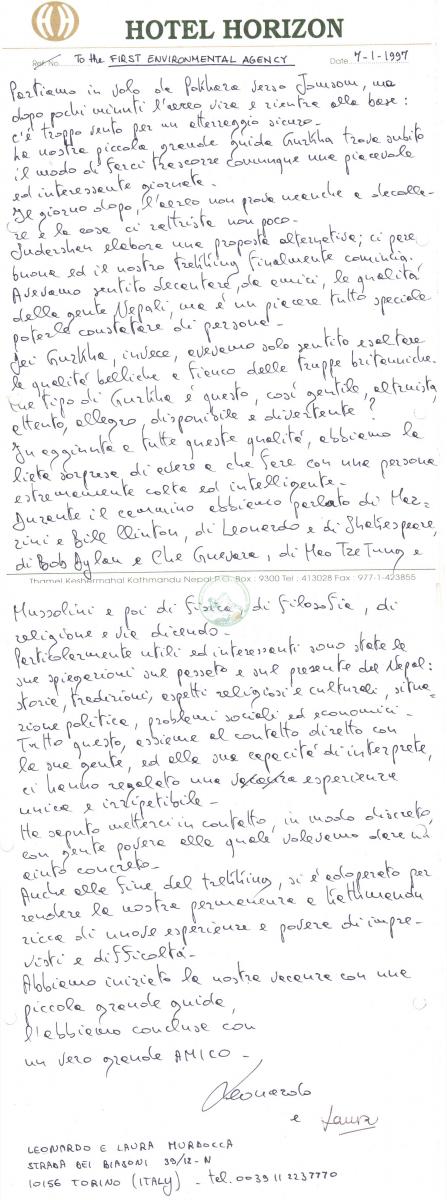 HOTEL HORIZON
Ref. No. To the FIRST ENVIRONMENTAL AGENCY Date 7-1-1997
Partiamo in volo da Pokhara verso Jomsom, ma
dopo pochi minuti l'aereo vira e rientra alla base:
c'è troppo vento per un atterraggio sicuro.
La nostra piccola grande guida Gurkha trova subito
il modo di farci trascorre comunque una piacevole
ed interessante giornata.
Il giorno dopo, l'aereo non prova neanche a decolla-
re e la cosa ci rattrista non poco.
Sudershan elabora una proposta alternativa; ci pare
buona ed il nostro trekking finalmente comincia.
Avevamo sentito decantare, da amici, le qualità
della gente Nepali, ma è un piacere tutto speciale
poterle constatare di persona.
Dei Gurkha, invece, avevamo solo sentito esaltare
le qualità belliche a fianco delle truppe britanniche.
Che tipo di Gurkha è questo, così gentile, altruista,
attento, allegro, disponibile e divertente?
In aggiunta a tutte queste qualità, abbiamo la
lieta sorpresa di avere a che fare con una persona
estremamente colta ed intelligente.
Durante il cammino abbiamo parlato di Maz-
zini e Bill Clinton, di Leonardo e di Shakespeare,
di Bob Dylan e Che Guevara, di Mao Tze Tung e
Thamel Keshermahal Kathmandu Nepal P.O. Box : 9300 Tel ; 413028 Fax : 977-1-423855
Mussolini e poi di fisica, di filosofia, di
religione e via dicendo.
Particolarmente utili ed interessanti sono state le
sue spiegazioni sul passato e sul presente del Nepal:
storia, tradizioni, aspetti religiosi e culturali, situa-
zione politica, problemi sociali ed economici.
Tutto questo, assieme al contatto diretto con
la sua gente, ed alla sua capacità di interprete,
ci hanno regalato una esperienza
unica e irripetibile.
Ha saputo metterci in contatto, in modo discreto,
con gente povera alla quale volevamo dare un
aiuto concreto.
Anche alla fine del trekking, si è adoperato per
rendere la nostra permanenza a Kathmandu
ricca di nuove esperienze e povera di impre-
visti e difficoltà.
Abbiamo iniziato la nostra vacanza con una
piccola grande guida,
l'abbiamo conclusa con
un vero grande AMICO -
Leonardo
e Laura
LEONARDO E LAURA MURDOCCA
STRADA DEI BIASONI 39/12-N
10156 TORINO (ITALY) - tel. 0039 11 2237770